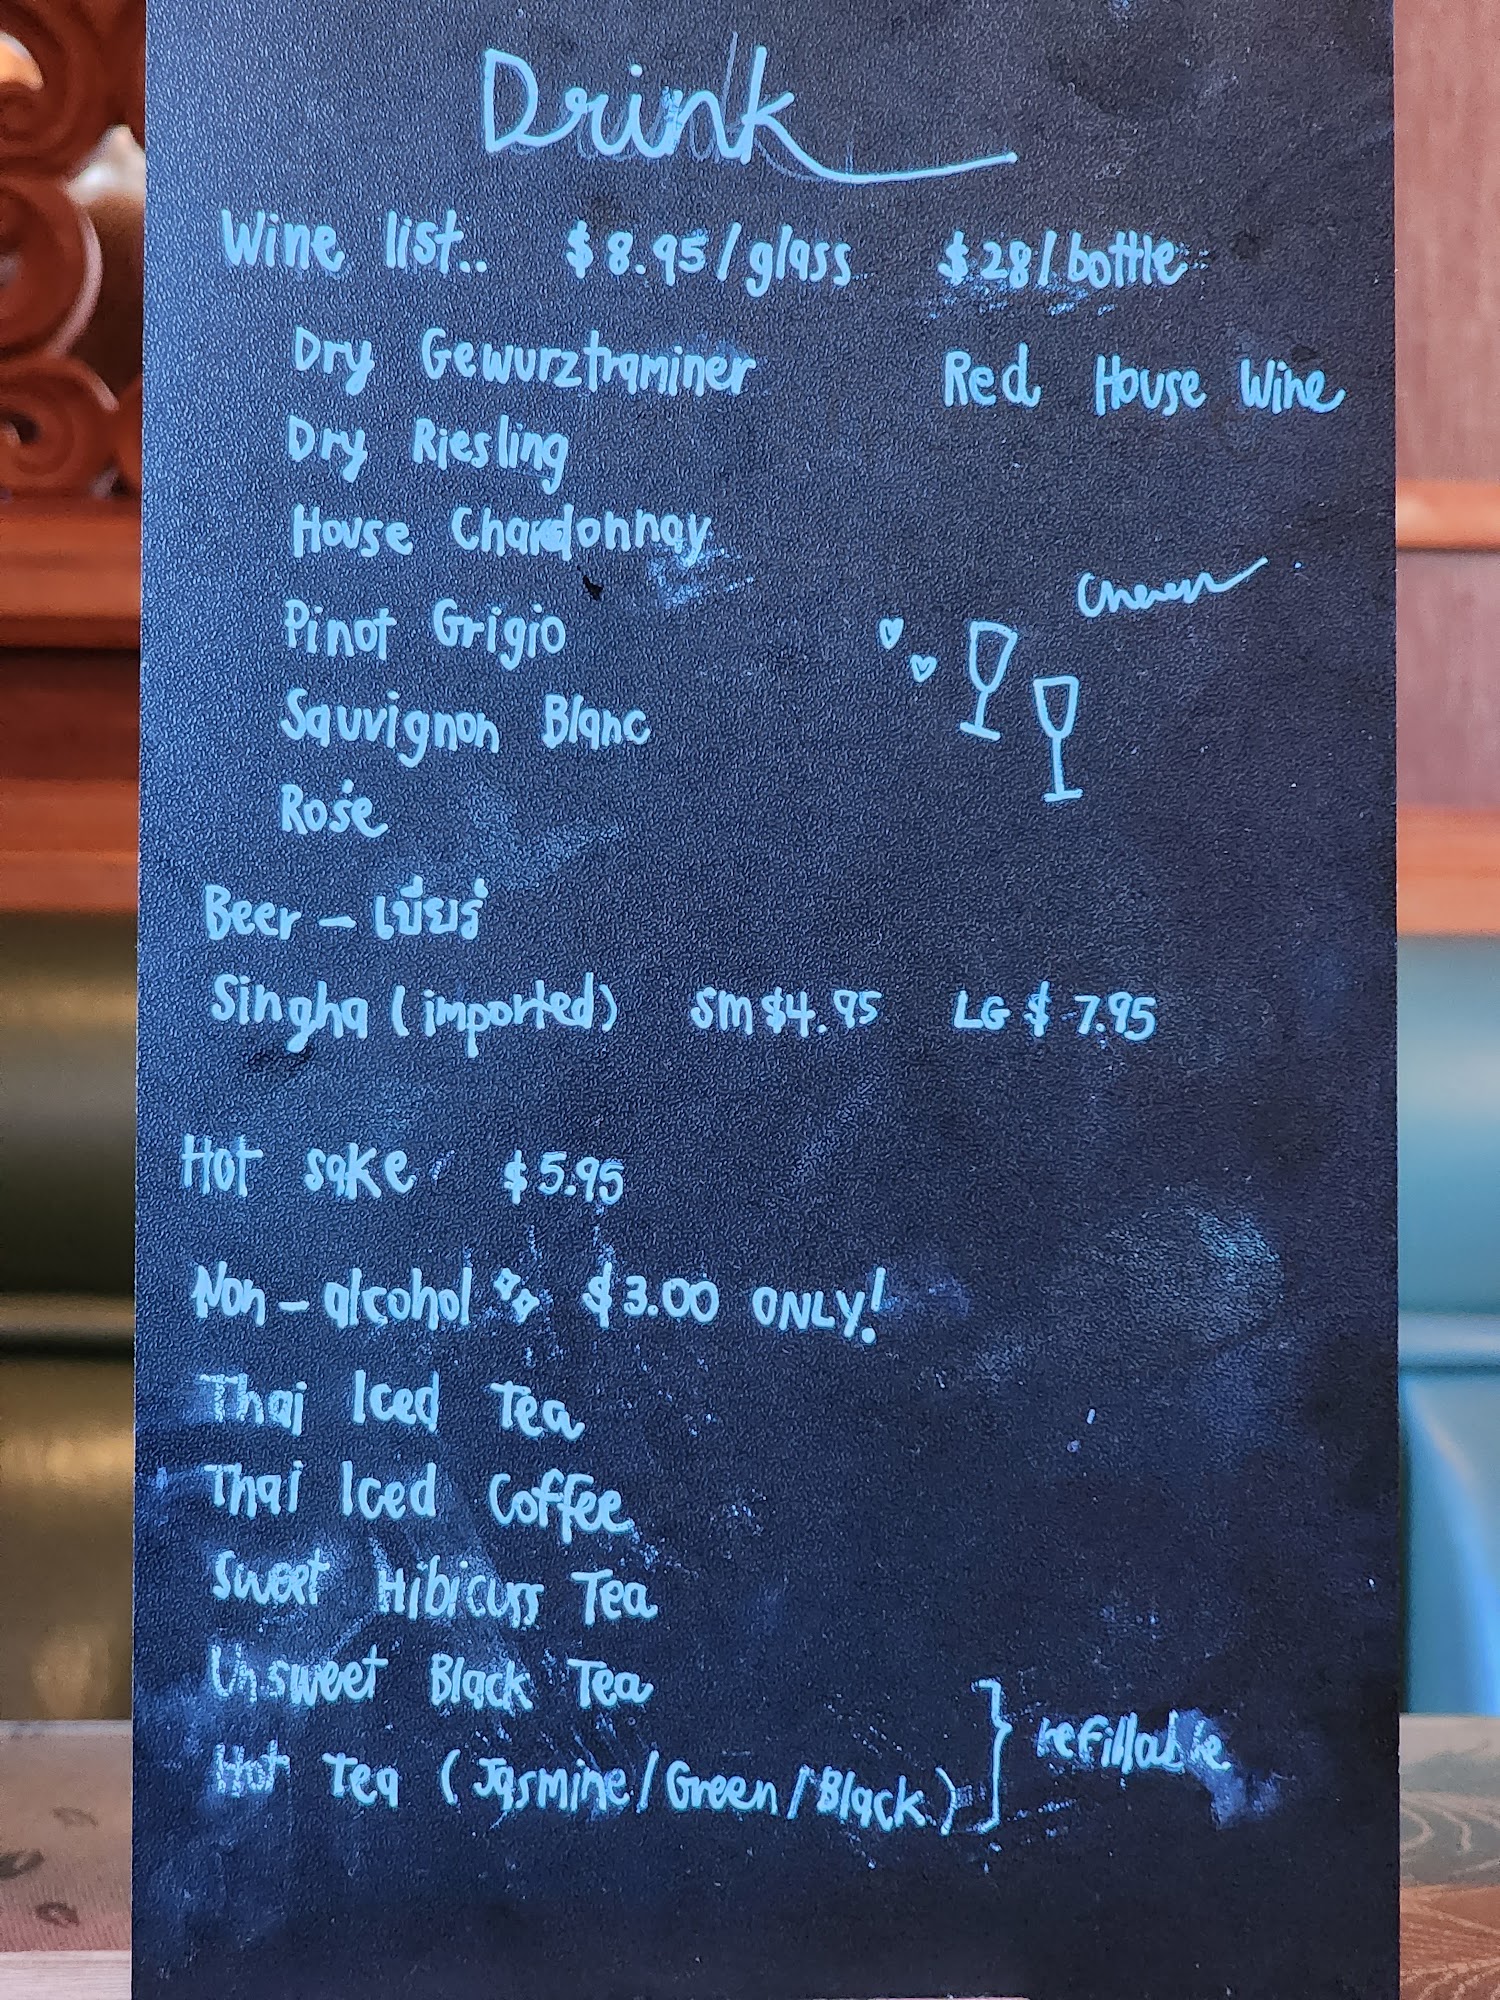 Drink
Wine list.. $8.95/glass $28/bottle
Dry Gewurztraminer Red House Wine
Dry Riesling
House Chardonnay
Pinot Grigio
Cheers
Sauvignon Blanc
Rosé
Beer - เบียร์
Singha (imported) Sm $4.95 LG $7.95
Hot sake $5.95
Non-alcohol $3.00 ONLY!
Thai Iced Tea
Thai Iced Coffee
Sweet Hibicuss Tea
Unsweet Black Tea
Hot Tea (Jasmine/Green/Black) } refillable